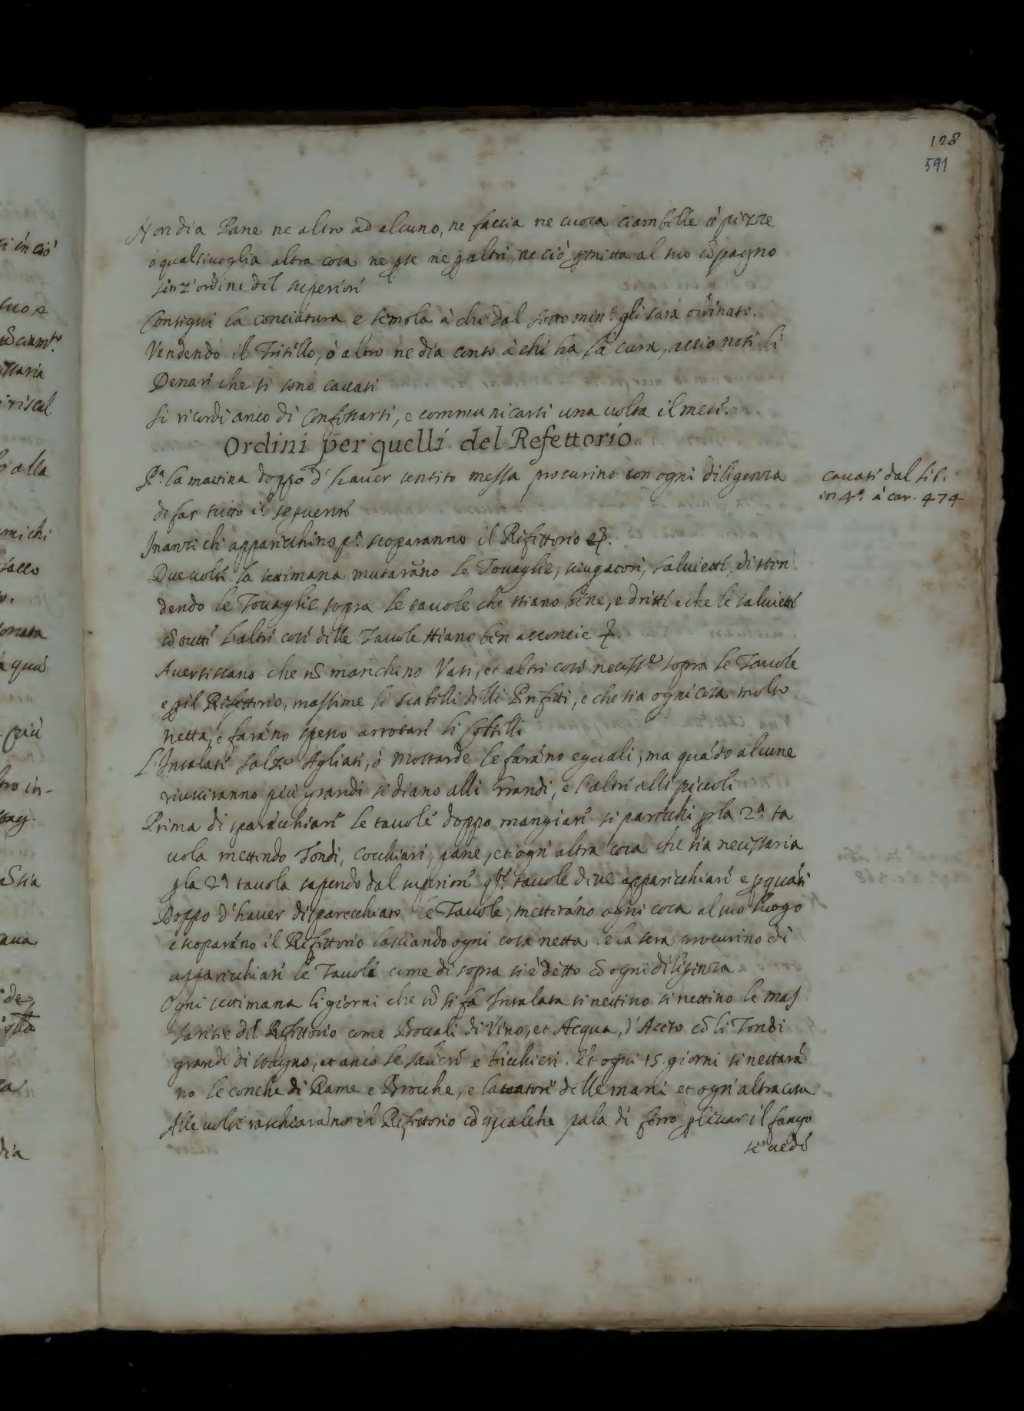 128
591
Non dia Pane ne altro ad alcuno, ne faccia ne cuoca ciambelle ò pizze
ò qualsivoglia altra cosa ne p se ne p altri, ne ciò pmitta al suo cõpagno
senz'ordine del superiori
Consegni la conciatura e semola à chi dal sopro min.º gli sara ordinato.
Vendendo il Tritello, ò altro ne dia conto à chi ha la cura, accio noti li
Denari che si sono cavati
Si ricordi anco di Confessarsi, e communicarsi una volta il mese.
Ordini per quelli del Refettorio
Pª la mattina doppo d'haver sentito messa procurino con ogni diligenza
di far tutto il seguente
cavati dal lib.
in 4º à car. 474
Inanzi che apparicchino pº scoparanno il Refittorio
Due volte la settimana mutarãno le Tovaglie, sciugatori, salviette, disten
dendo le Tovaglie sopra le tavole che stiano bene, e dritte e che le salviette
cõ tutti l'altri cosi delle Tavole stiano ben acconcie
Avertiscano che nõ manchino Vasi, et altri cosi necessº sopra le Tavole
e p il Refettorio, massime li scabelli delli Prefetti, e che sia ogni cosa molto
netta, e farãno spesso arrotari li Coltelli
L'Insalate salze Agliati, ò Mostarde le farãno eguali, ma quãdo alcune
riusciranno piu grandi si diano alli Grandi, e l'altri alli piccoli
Prima di sparecchiare le tavole doppo mangiare si parecchi p la 2ª ta
vola mettendo Tondi, Cocchiari, pane, et ogni altra cosa che sia necessaria
p la 2ª tavola sapendo dal superiore qte tavole deve apparicchiare e p quãti
Doppo d'haver disparecchiato le Tavole, mettirãno ogni cosa al suo luogo
e scoparãno il Refettorio lasciando ogni cosa netta. e la sera procurino di
apparicchiare le Tavole come di sopra si è detto cõ ogni diligenza
Ogni settimana li giorni che nõ si fà Insalata si nettino si nettino le mas
saritie del Refettorio come Boccali di Vino, et Acqua, d'Aceto cõ li Tondi
grandi di stagno, et anco le saliere e bicchieri. Et ogni 15. giorni si nettarã
no le conche di Rame e Brocche, e lavatori delle mani et ogn'altra cosa
Alle volte raschiarãno il Refettorio cõ qualche pala di ferro p levar il fango